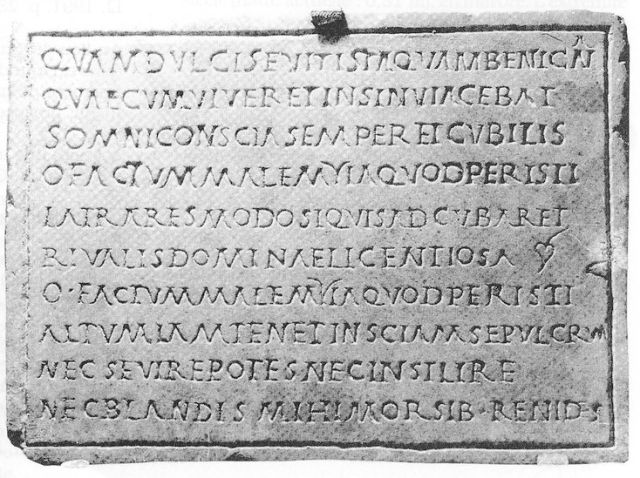 QVAM DVLCIS FVIT ISTA QVAM BENIGNA
QVAE CVM VIVERET IN SINV IACEBAT
SOMNI CONSCIA SEMPER ET CVBILIS
O FACTVM MALE MYIA QVOD PERISTI
LATRARES MODO SI QVIS ADCVBARET
RIVALIS DOMINAE LICENTIOSA
O · FACTVM MALE MYIA QVOD PERISTI
ALTVM IAM TENET INSCIAM SEPVLCRVM
NEC SEVIRE POTES NEC INSILIRE
NEC BLANDIS MIHI MORSIB · RENIDES